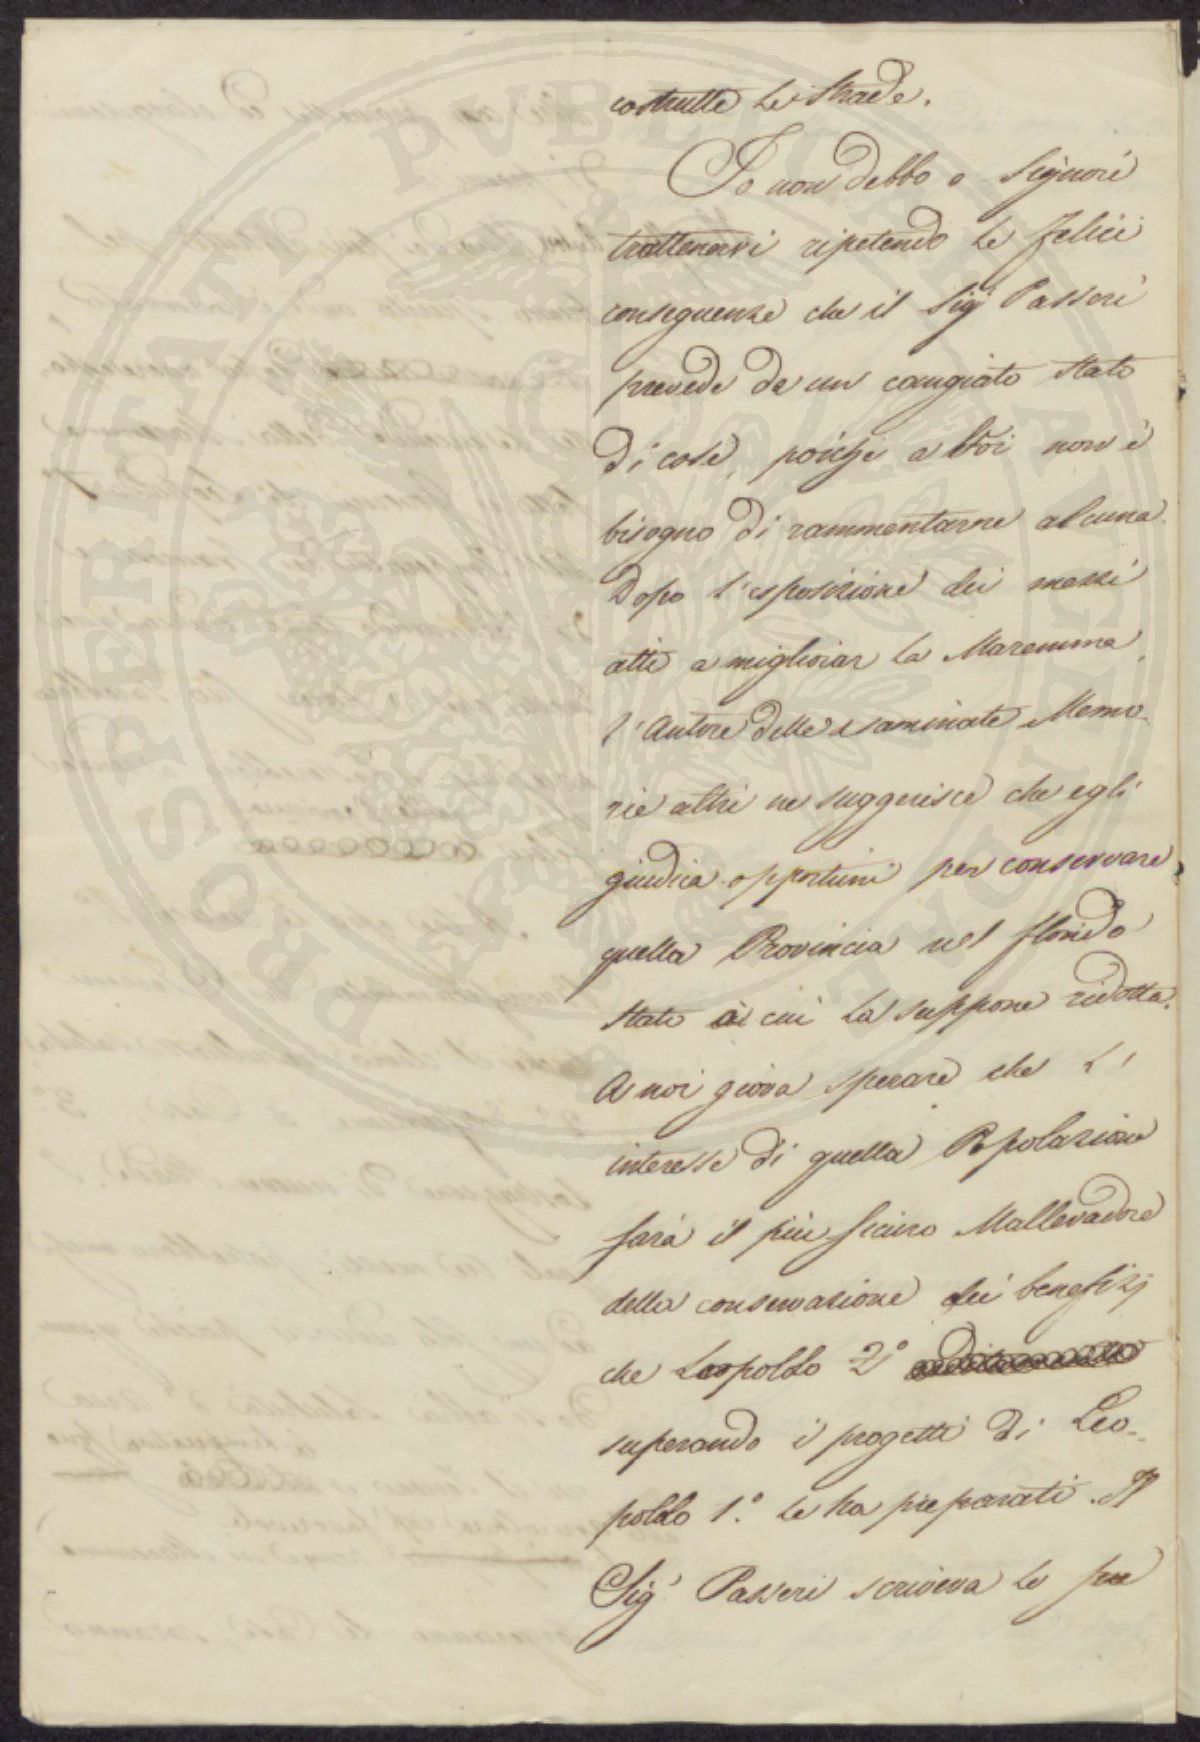 costrutte le strade.
Io non debbo o Signori
trattenervi ripetendo le felici
conseguenze che il Sig.r Passeri
prevede da un cangiato stato
di cose, poiche a Voi non è
bisogno di rammentarne alcuna.
Dopo l'esposizione dei mezzi
atti a migliorar la Maremma,
l'Autore delle esaminate Memo-
rie altri ne suggerisce che egli
giudica opportuni per conservare
quella Provincia nel florido
stato a cui la suppone ridotta.
A noi giova sperare che l'
interesse di quella Popolazione
sarà il più sicuro Mallevadore
della conservazione dei benefizj
che Leopoldo 2.o
superando i progetti di Leo-
poldo 1.o le ha preparati. Il
Sig.r Passeri scriveva le sue
PROSPERITATI PUBLICAE AUGENDAE